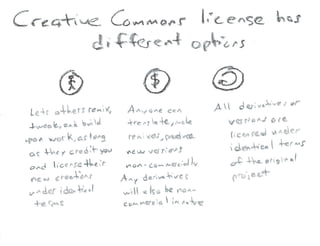 Creative Commons license has
different options
Lets others remix,
tweak, and build
upon work, as long
as they credit you
and license their
new creations
under identical
terms
Anyone can
translate, make
remixes, produce
new versions
non-commercially
Any derivatives
will also be non-
commercial in nature
All derivatives or
versions are
licensed under
identical terms
of the original
project